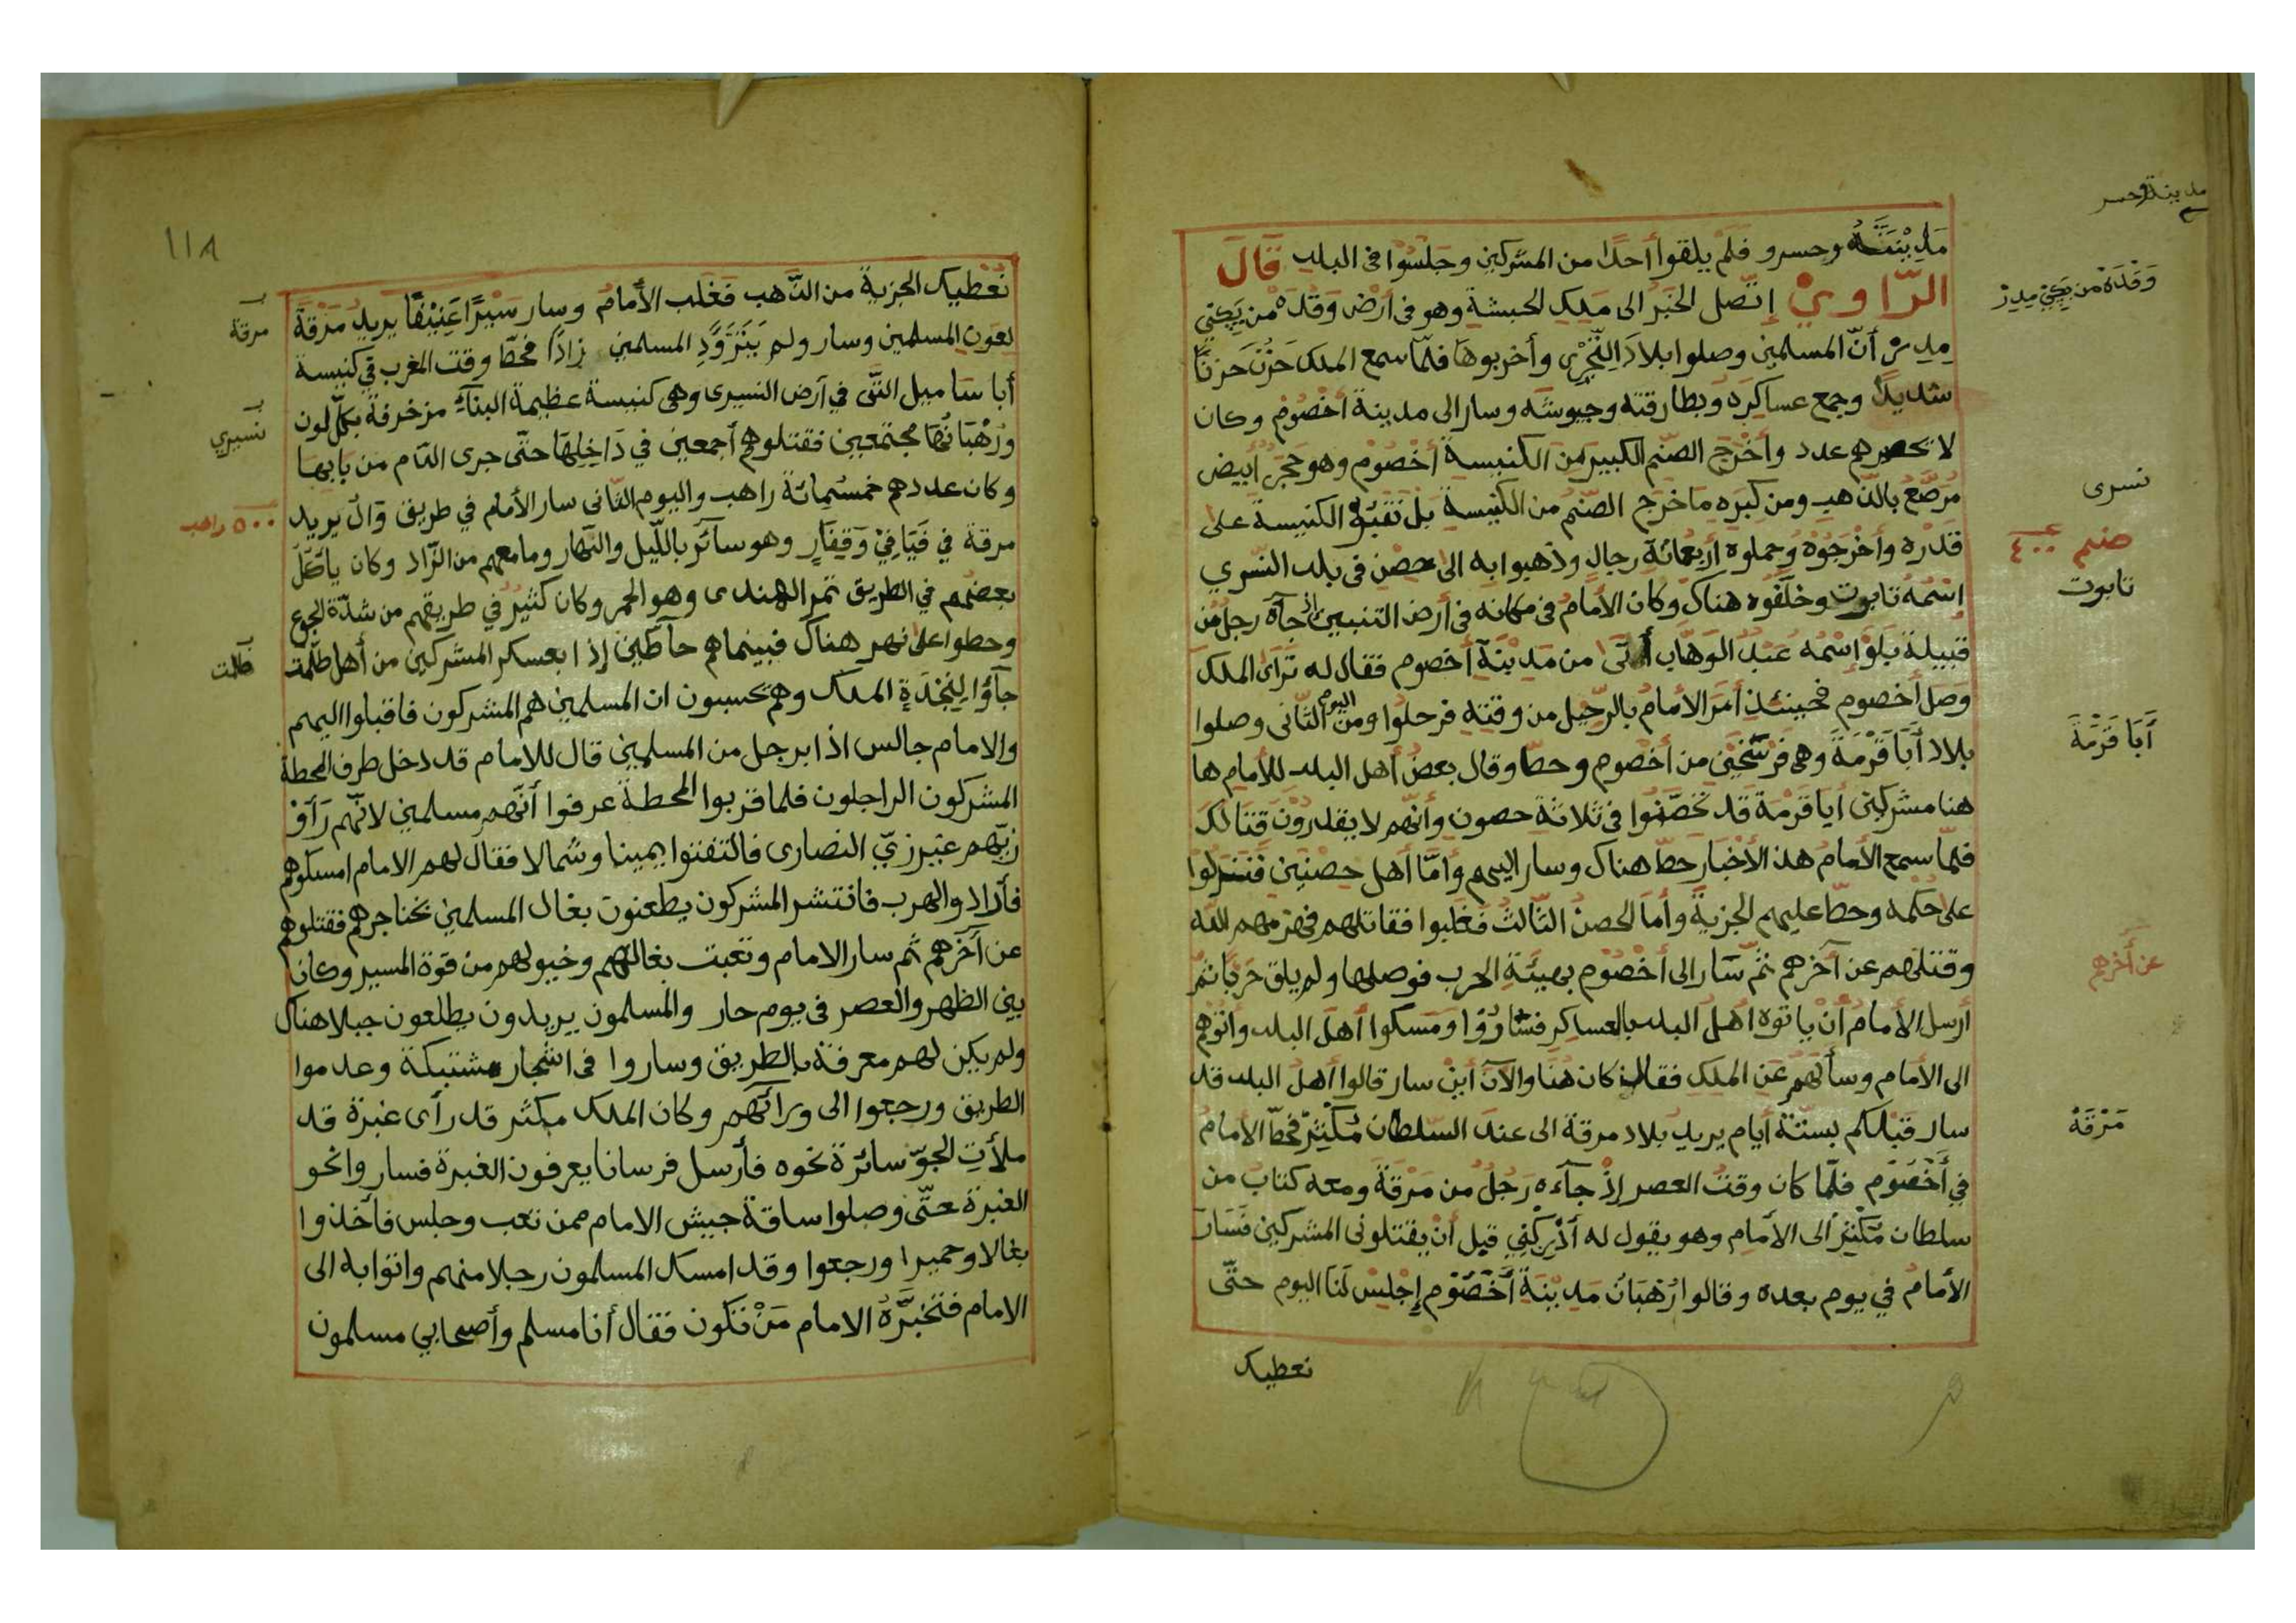 مدينة وحسر
مَدِيْنَتَهُ وحسرو فَلَمْ يلقوا أحدًا من المشركين وجَلَسُوا فى البلد قَالَ
الرّاوِيْ إتّصل الخبَرُ الى مَلِكِ الحبشةِ وهو فى ارَض وَقْدَه من يَجِّىْ
وَقْدَهْ من يَجِّىْ مِدِرْ
مِدِرْ أنّ المسلمين وصلوا بلادَ التِّجْرِى وأخربوها فلمّا سمع الملك حَزُنَ حَزنًا
شديدًا وجمع عساكرَه وبطارقته وجيوشَه وسار الى مدينة أخصُومْ وكان
لا تحصرهم عدد وأخْرج الصَنم الكبير مِنَ الكنيسة أخْصُوْم وهو حَجَرٌ أبيض
مُرصّعُ بالذّهب ومن كبره ماخرج الصّنم من الكَنِيسَة بل نقبُوْا الكنيسة على
نسرى
قدره وأخْرَجُوْهُ وحملوه أرْبعمائة رجالٍ وذهبوا به الى حصْن فى بلد النّسري
صنم ٤٠٠
إسْمُهُ تابوت وخلّفوه هناك وكان الأمامُ فى مكانه فى أرض التنبين إذ جآه رجل من
تابوت
قبيلة بَلَوْ إسْمُه عبْدُ الوَهّاب أتى من مَدِيْنة أخصوم فقال له تَرَاىَ الملك
وَصَل أخصوم فحينئذٍ أمَرَ الأمامُ بالرّحِيلِ من وقته فرحلُوا ومن اليوم الثّانى وصلوا
بلاد أَبَا قَرْمَةَ وهى فَرْسَخَيْن من أخصوم وحطّا وقال بعضُ أهل البلد للأمام ها
أَبَا قَرْمَةَ
هنا مشركين أبا قَرْمَة قد تَحَصَّنُوا فى ثلاثة حصون وأنّهم لا يقدرُوْنَ قتالك
فلمّا سمع الأمامُ هذ الأخبار حطّ هناك وسار اليهم وَأمّا أهل حصنين فَنزلوْا
على حُكمه وحطّ عليهم الجزيةَ وأما الحصن الثّالثُ فغلبوا فقاتلهم فهزمهم الله
وقتلهم عن آخرهم ثمّ سَار الى أخْصُوْم بهيئةِ الحرب فوصلها ولم يلق حَربًا ثمّ
عن آخرهم
أرسل الأمامُ أنْ ياتوه أهلُ البلد بالعساكر فسَارُوْا ومَسكوا أهل البلد واتوْهم
الى الأمام وسألهُم عَن الملكِ فقال كان هُنا والآن أينَ سار قالوا أهلُ البلد قد
سار قبلكم بستّة أيام يريد بلاد مرقة الى عند السّلطان مُكَثِّرْ فحطّ الأمامُ
مَرْقَةْ
فى أَخْصُوْم فلمّا كان وقتُ العصر إذْ جآءَه رَجُلٌ من مَرْقَةَ ومعه كتابٌ من
سلطان مُكَثِّرْ الى الأمام وهو يقول له أدْرِكْنِى قبل أنْ يقتلونى المشركين فَسَارَ
الأمامُ في يوم بعده وقالوا رُهْبَانُ مَدِيْنَةِ أَخْصُوْم إجْلِسْ لَنَا اليوم حتّى
نعطيك
١١٨
نُعْطيك الجزية من الذّهب فَغَلَب الأمام وسار سَيْرًا عَنِيْفًا يريدُ مَرْقَةَ
مرقة
لعَون المسلمين وسار ولم يَتَزَوَّدِ المسلمين زادًا فحطّا وقت المغرب في كنيسة
أبا ساميل التّى في أرض النسيرى وهى كنيسة عظيمة البنآءِ مزخرفة بكلّ لون
نسيري
ورُهْبَانُها مجتمعين فقتلوهم أجمعين في دَاخِلِهَا حتّى جرى الدّام من بابها
وكان عددهم خمسُمائة راهب واليوم الثّانى سار الأمام في طريق وَالَ يريد
٥٠٠ راهب
مرقة في فَيَافِيْ وَقِفَارٍ وهو سآئر باللّيل والنّهار ومامعهم من الزّاد وكان يأكل
بعضهم في الطريق تمر الهندى وهو الحمر وكان كثيرٌ في طريقهم من شدّة الجوع
وحطوا على نهر هناك فبينماهم حآطّين إذا بعسكر المشركين من أهل طلمت
طلمت
جآؤا لِنَجْدَةِ الملك وهم تحسبون ان المسلمين هم المشركون فاقبلوا اليهم
والامام جالس اذا برجل من المسلمين قال للامام قد دخل طرف المحطة
المشركون الراجلون فلما قربوا المحطة عرفوا أنّهم مسلمين لانّهم رَآوْ
زيّهم غير زيّ النصارى فالتفتوا يمينا وشمالا فقال لهم الامام امسكوهم
فأراد والهرب فانتشر المشركون يطعنون بغال المسلمين بخناجرهم فقتلوهم
عن آخرهم ثم سار الامام وتعبت بغالهم وخيولهم من قوة المسير وكان
بين الظهر والعصر فى يوم حار والمسلمون يريدون يطلعون جبلا هناك
ولم يكن لهم معرفة بالطريق وساروا فى اشجار مشتبكة وعدموا
الطريق ورجعوا الى ورآئهم وكان الملك مكثر قد رأى غبرة قد
ملأت الجوّ سائرة نحوه فأرسل فرسانا يعرفون الغبرة فسار وانحو
الغبرة حتّى وصلوا ساقة جيش الامام ممن تعب وجلس فأخذوا
بغالا وحميرا ورجعوا وقد امسك المسلمون رجلا منهم واتوا به الى
الامام فتخبَّرَهُ الامام مَنْ تكون فقال أنا مسلم وأصحابي مسلمون